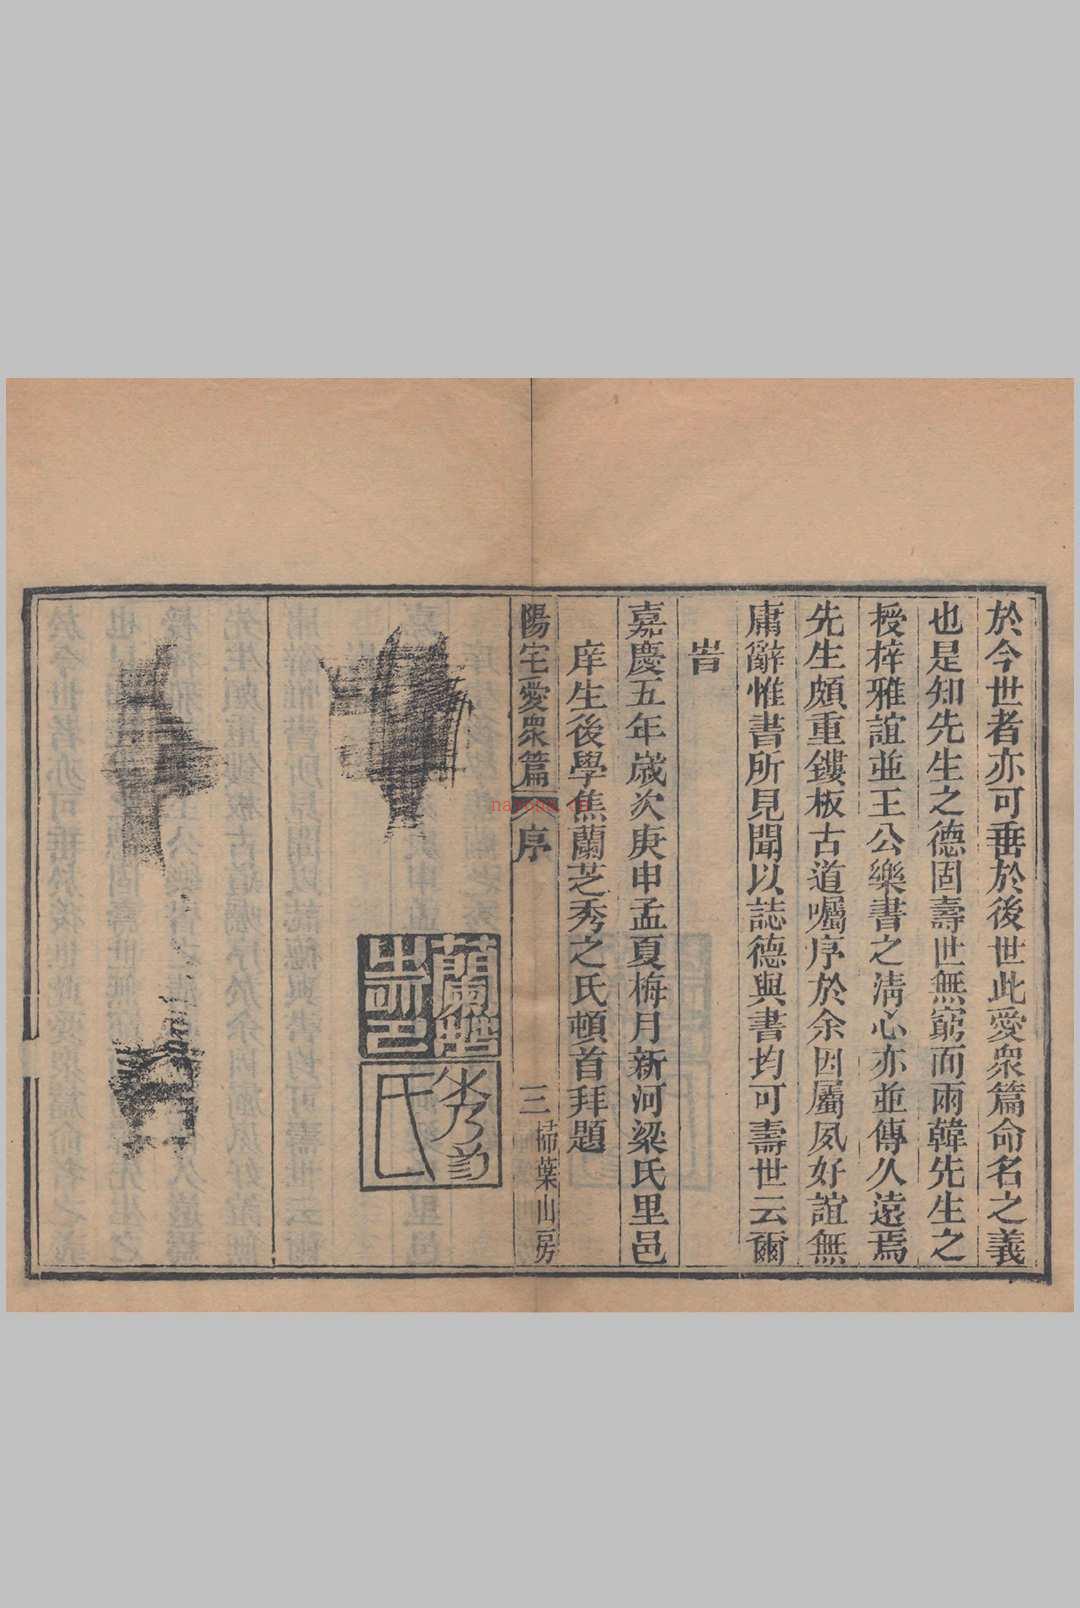 於今世者亦可垂於後世此愛衆篇命名之義
也是知先生之德固壽世無窮而兩韓先生之
授梓雅誼並王公樂書之淸心亦並傳久遠焉
先生頗重鏤板古道囑序於余因屬夙好誼無
庸辭惟書所見聞以誌德與書均可壽世云爾
旹
嘉慶五年歲次庚申孟夏梅月新河梁氏里邑
庠生後學焦蘭芝秀之氏頓首拜題
陽宅愛衆篇 序 三 掃葉山房
蘭芝之印
氏